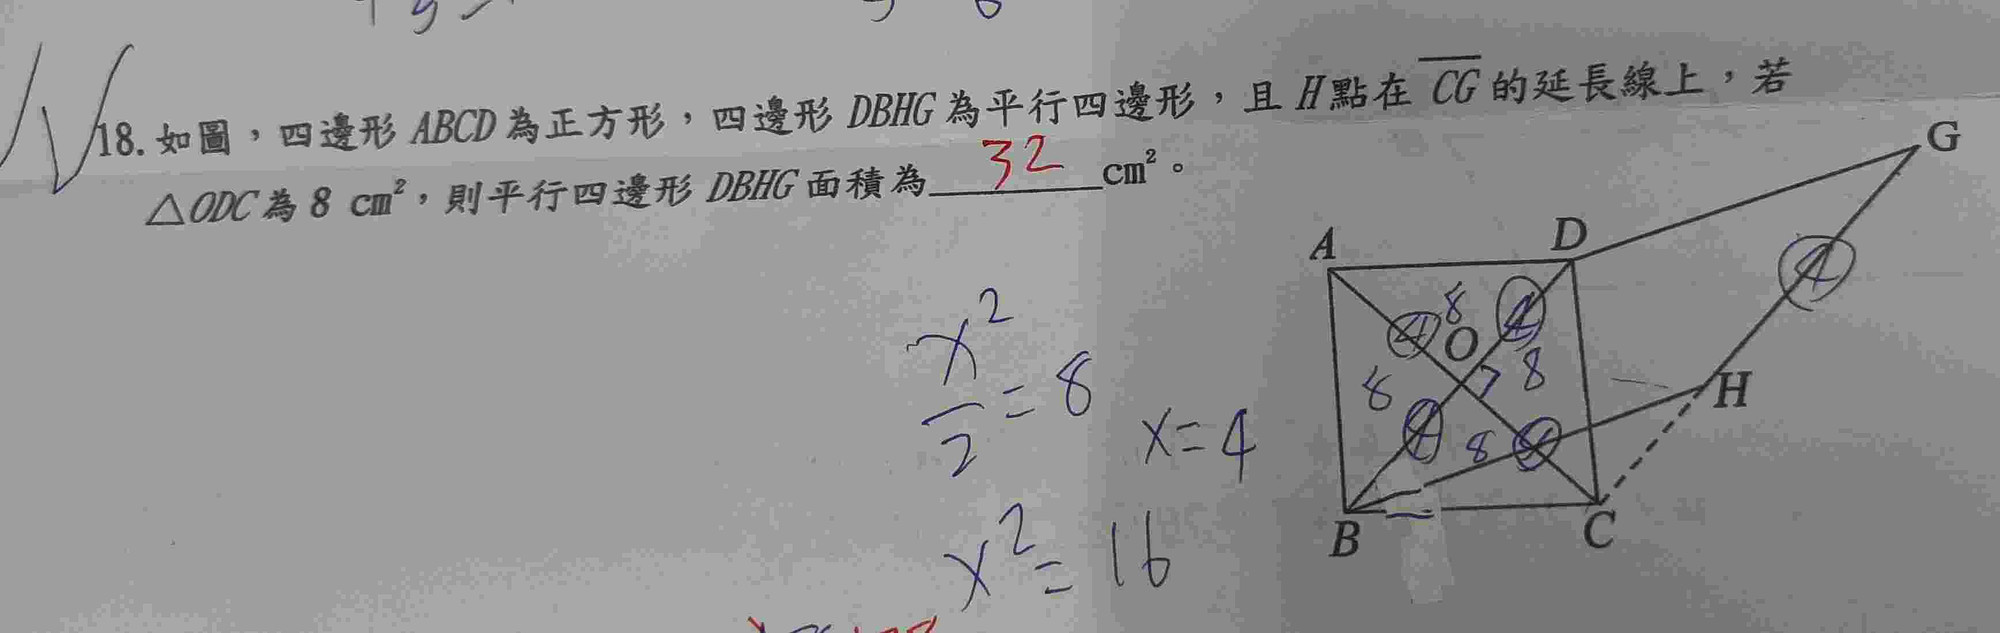 18. 如圖，四邊形 ABCD 為正方形，四邊形 DBHG 為平行四邊形，且 H 點在 CG 的延長線上，若
△ODC 為 8 cm²，則平行四邊形 DBHG 面積為 32 cm²。
G
A
D
8
4
4
4
O
8
8
H
4
8
B
C
x²/2 = 8
x = 4
x² = 16